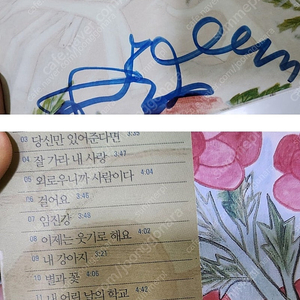 03 당신만 있어준다면 3:35
04 잘 가라 내 사랑 3:47
05 외로우니까 사람이다 4:04
06 걸어요 3:46
07 임진강 3:48
08 이제는 웃기로 해요 4:02
09 내 강아지 3:21
10 별과 꽃 4:06
내 어린 날의 학교 4:42